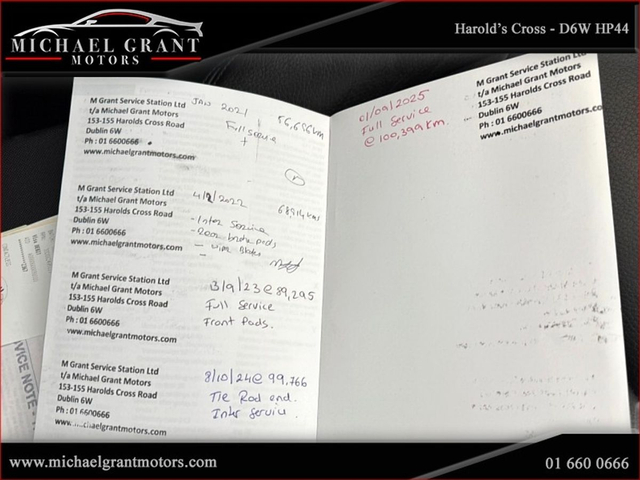 MICHAEL GRANT
MOTORS
Harold's Cross - D6W HP44
M Grant Service Station Ltd
t/a Michael Grant Motors
153-155 Harolds Cross Road
Dublin 6W
Ph : 01 6600666
www.michaelgrantmotors.com
JAN 2021
56,656 km
Full Service
+
M Grant Service Station Ltd
t/a Michael Grant Motors
153-155 Harolds Cross Road
Dublin 6W
Ph : 01 6600666
www.michaelgrantmotors.com
2022
- Inter Service
- Rear brake pads
-
M Grant Service Station Ltd
t/a Michael Grant Motors
153-155 Harolds Cross Road
Dublin 6W
Ph : 01 6600666
www.michaelgrantmotors.com
13/9/23 @ 89,295
Full Service
Front Pads.
M Grant Service Station Ltd
t/a Michael Grant Motors
153-155 Harolds Cross Road
Dublin 6W
Ph : 01 6600666
www.michaelgrantmotors.com
8/10/24 @ 99,766
Tie Rod end.
Inter Service.
01/09/2025
Full Service
@ 100,399 Km.
M Grant Service Station Ltd
t/a Michael Grant Motors
153-155 Harolds Cross Road
Dublin 6W
Ph : 01 6600666
www.michaelgrantmotors.com
VICE NOTE
www.michaelgrantmotors.com
01 660 0666